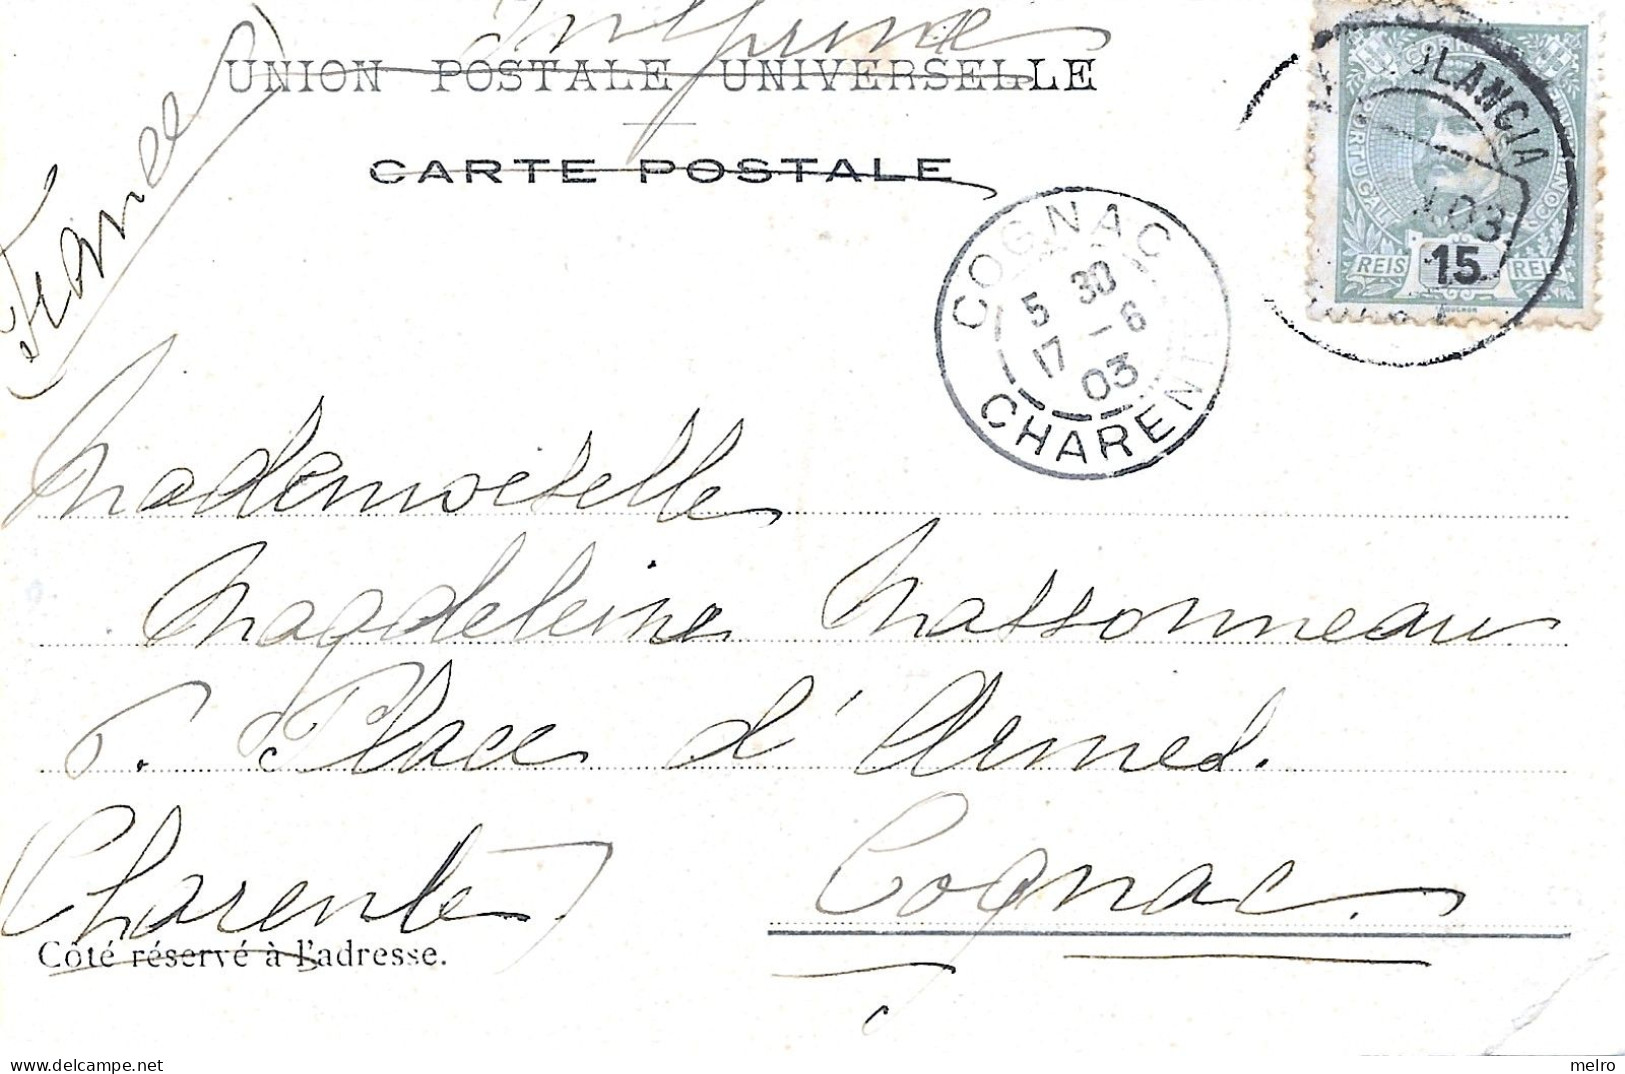 Imprimé
UNION POSTALE UNIVERSELLE
CARTE POSTALE
France
CORRE
PORTUGAL
REIS 15 REIS
MOUCHON
03
COGNAC
5 30
17 - 6
03
CHARENT
Mademoiselle
Magdeleine Massonneau
5. Place d'Armes.
Charente
Cognac.
Côté réservé à l'adresse.
delcampe.net
melro